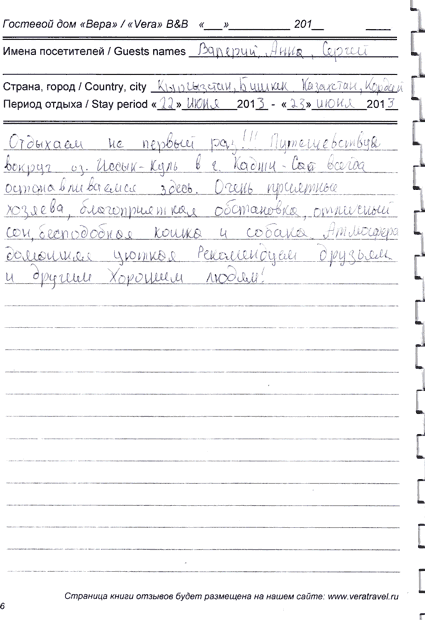 Гостевой дом «Вера» / «Vera» B&B «___»__________ 201__
Имена посетителей / Guests names Валерий, Анна, Сергей
Страна, город / Country, city Кыргызстан, Бишкек Казахстан, Кордай
Период отдыха / Stay period «22» июня 2013 - «23» июня 2013
Отдыхаем не первый раз!!! Путешествуя
вокруг оз. Иссык-Куль в г. Каджи-Сай всегда
останавливаемся здесь. Очень приятные
хозяева, благоприятная обстановка, отличный
сон, бесподобная кошка и собака. Атмосфера
домашняя уютная Рекомендуем друзьям
и другим Хорошим людям!
Страница книги отзывов будет размещена на нашем сайте: www.veratravel.ru
6